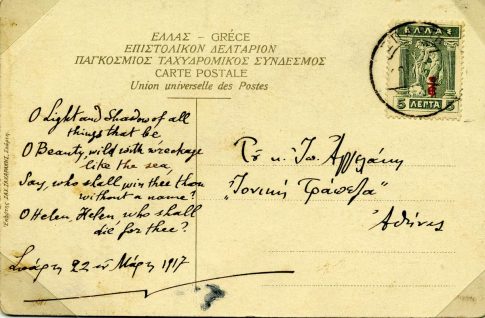 ΕΛΛΑΣ – GRÉCE
ΕΠΙΣΤΟΛΙΚΟΝ ΔΕΛΤΑΡΙΟΝ
ΠΑΓΚΟΣΜΙΟΣ ΤΑΧΥΔΡΟΜΙΚΟΣ ΣΥΝΔΕΣΜΟΣ
CARTE POSTALE
Union universelle des Postes
ΕΛΛΑΣ
5 ΛΕΠΤΑ 5
O Light and Shadow of all
things that be
O Beauty, wild with wreckage
like the sea,
Say, who shall win thee thou
without a name?
O Helen, Helen, who shall
die for thee?
Σπάρτη 22 Μάρτη 1917
κ. Ἰω. Ἀγγελάκη
"Ἰονική Τράπεζα"
Ἀθήνας